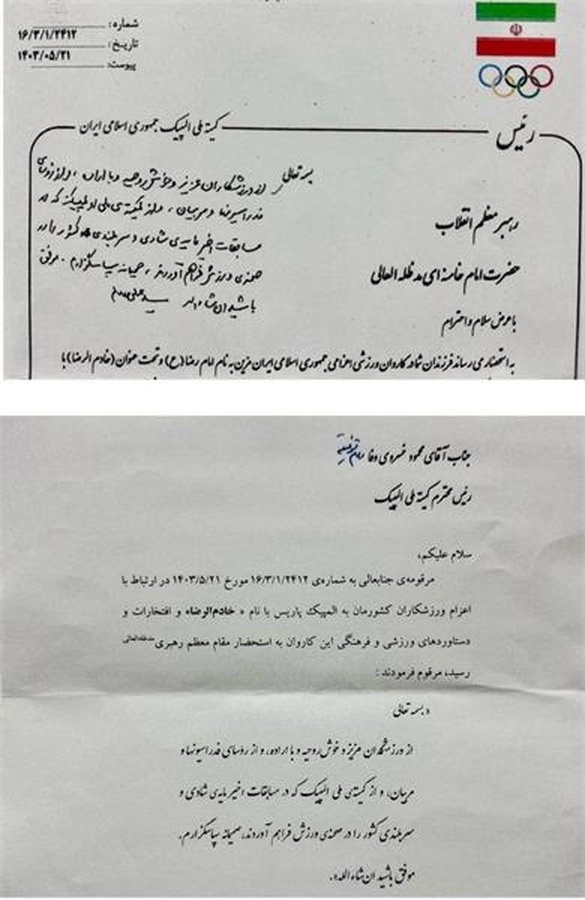 شماره:
۱۶/۳/۱/۲۴۱۲
تاریخ:
۱۴۰۳/۰۵/۲۱
پیوست:
رئیس
کمیته ملی المپیک جمهوری اسلامی ایران
بسمه تعالی
از ورزشکاران عزیز و خوش‌روحیه و با اراده، و از رؤسای
فدراسیونها و مربیان، و از کمیته‌ی ملی المپیک که در
مسابقات اخیر مایه‌ی شادی و سربلندی کشور را در
صحنه‌ی ورزش فراهم آوردند، صمیمانه سپاسگزارم. موفق
باشید ان‌شاءالله
سیدعلی خامنه‌ای
رهبر معظم انقلاب
حضرت امام خامنه ای مدظله العالی
با عرض سلام و احترام
به استحضار می رساند فرزندان شما در کاروان ورزشی اعزامی جمهوری اسلامی ایران مزین به نام امام رضا(ع) و تحت عنوان (خادم الرضا) با
جناب آقای محمود خسروی وفا
رئیس محترم کمیته ملی المپیک
سلام علیکم،
مرقومه‌ی جنابعالی به شماره‌ی ۱۶/۳/۱/۲۴۱۲ مورخ ۱۴۰۳/۵/۲۱ در ارتباط با
اعزام ورزشکاران کشورمان به المپیک پاریس با نام « خادم‌الرضا» و افتخارات و
دستاوردهای ورزشی و فرهنگی این کاروان به استحضار مقام معظم رهبری مدظله‌العالی
رسید، مرقوم فرمودند :
« بسمه تعالی
از ورزشکاران عزیز و خوش‌روحیه و با اراده، و از رؤسای فدراسیونها و
مربیان، و از کمیته‌ی ملی المپیک که در مسابقات اخیر مایه‌ی شادی و
سربلندی کشور را در صحنه‌ی ورزش فراهم آوردند، صمیمانه سپاسگزارم.
موفق باشید ان شاء الله».